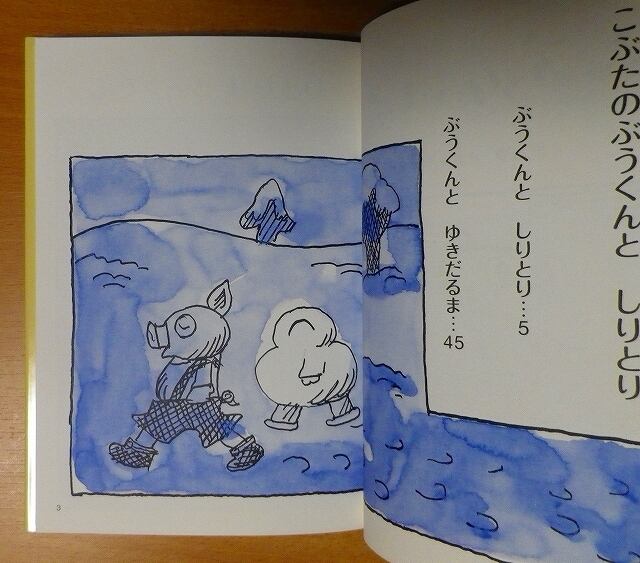 こぶたのぶうくんと　しりとり
ぶうくんと　しりとり…5
ぶうくんと　ゆきだるま…45
3